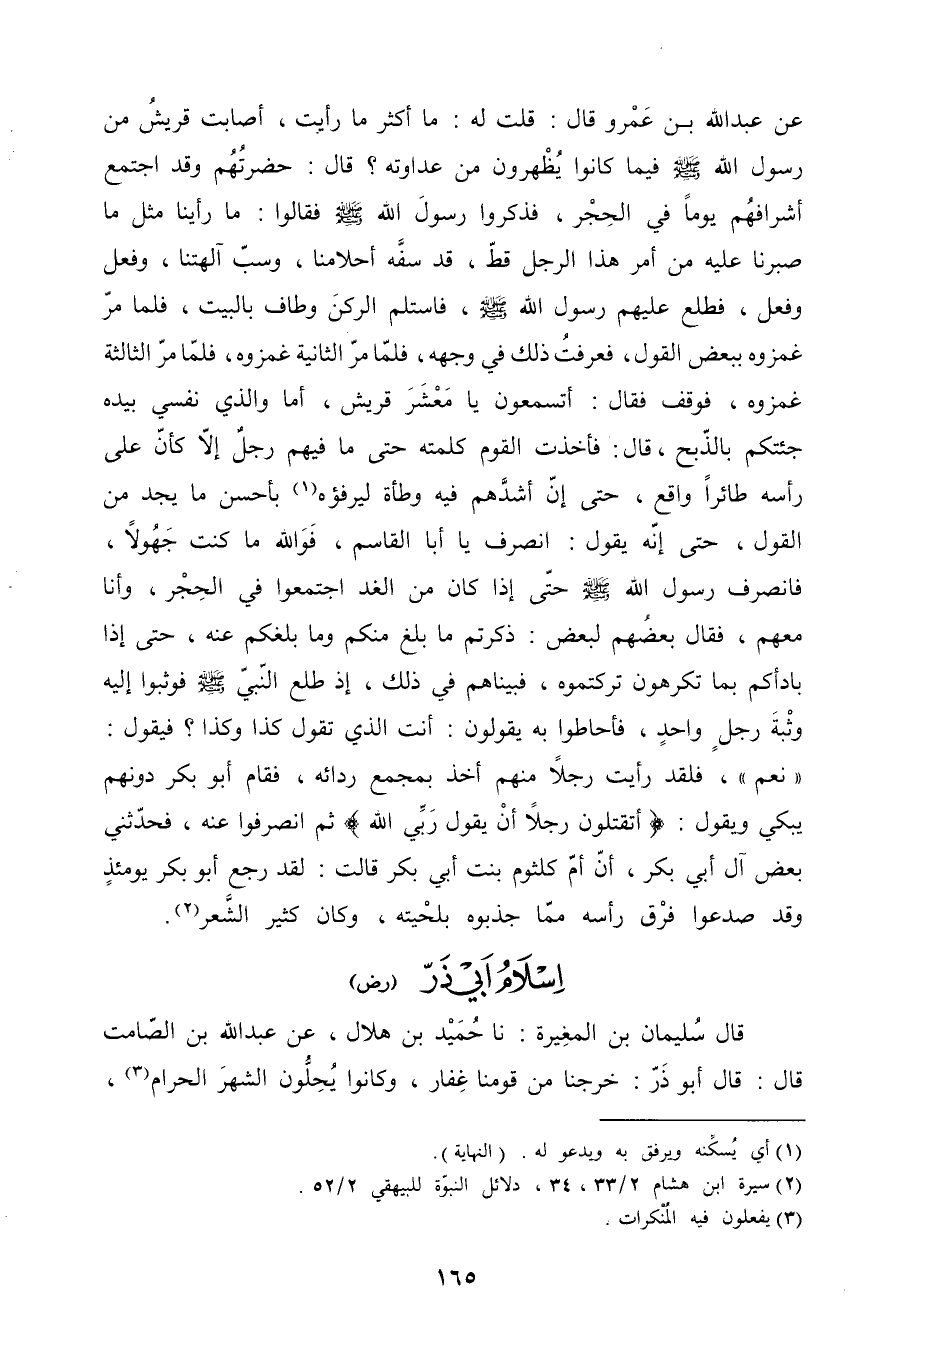 عن عبدالله بـن عَمْرو قال : قلت له : ما أكثر ما رأيت ، أصابت قريشُ من
رسول الله ﷺ فيما كانوا يُظْهرون من عداوته ؟ قال : حضرتُهُم وقد اجتمع
أشرافهُم يوماً في الحِجْر ، فذكروا رسولَ الله ﷺ فقالوا : ما رأينا مثل ما
صبرنا عليه من أمر هذا الرجل قطّ ، قد سفَّه أحلامنا ، وسبّ آلهتنا ، وفعل
وفعل ، فطلع عليهم رسول الله ﷺ ، فاستلم الركنَ وطاف بالبيت ، فلما مرّ
غمزوه ببعض القول، فعرفتُ ذلك في وجهه، فلمّا مرّ الثانية غمزوه، فلمّا مرّ الثالثة
غمزوه ، فوقف فقال : أتسمعون يا مَعْشَرَ قريش ، أما والذي نفسي بيده
جئتكم بالذّبح ، قال: فأخذت القوم كلمته حتى ما فيهم رجلٌ إلّا كأنّ على
رأسه طائراً واقع ، حتى إنّ أشدَّهم فيه وطأة ليرفؤه(١) بأحسن ما يجد من
القول ، حتى إنّه يقول : انصرف يا أبا القاسم ، فَوَالله ما كنت جَهُولاً ،
فانصرف رسول الله ﷺ حتّى إذا كان من الغد اجتمعوا في الحِجْر ، وأنا
معهم ، فقال بعضُهم لبعض : ذكرتم ما بلغ منكم وما بلغكم عنه ، حتى إذا
بادأكم بما تكرهون تركتموه ، فبيناهم في ذلك ، إذ طلع النّبيّ ﷺ فوثبوا إليه
وثْبةَ رجلٍ واحدٍ ، فأحاطوا به يقولون : أنت الذي تقول كذا وكذا ؟ فيقول :
« نعم » ، فلقد رأيت رجلاً منهم أخذ بمجمع ردائه ، فقام أبو بكر دونهم
يبكي ويقول : ﴿ أتقتلون رجلاً أنْ يقول رَبِّي الله ﴾ ثم انصرفوا عنه ، فحدّثني
بعض آل أبي بكر ، أنّ أمّ كلثوم بنت أبي بكر قالت : لقد رجع أبو بكر يومئذٍ
وقد صدعوا فرْق رأسه ممّا جذبوه بلحْيته ، وكان كثير الشَّعر(٢).
اِسْلَامُ اَبِي ذَرّ (رض)
قال سُليمان بن المغِيرة : نا حُمَيْد بن هلال ، عن عبدالله بن الصّامت
قال : قال أبو ذَرّ : خرجنا من قومنا غِفار ، وكانوا يُحِلُّون الشهرَ الحرام(٣) ،
(١) أي يُسكّنه ويرفق به ويدعو له . (النهاية).
(٢) سيرة ابن هشام ٣٣/٢ ، ٣٤ ، دلائل النبوّة للبيهقي ٥٢/٢ .
(٣) يفعلون فيه المُنْكرات .
١٦٥